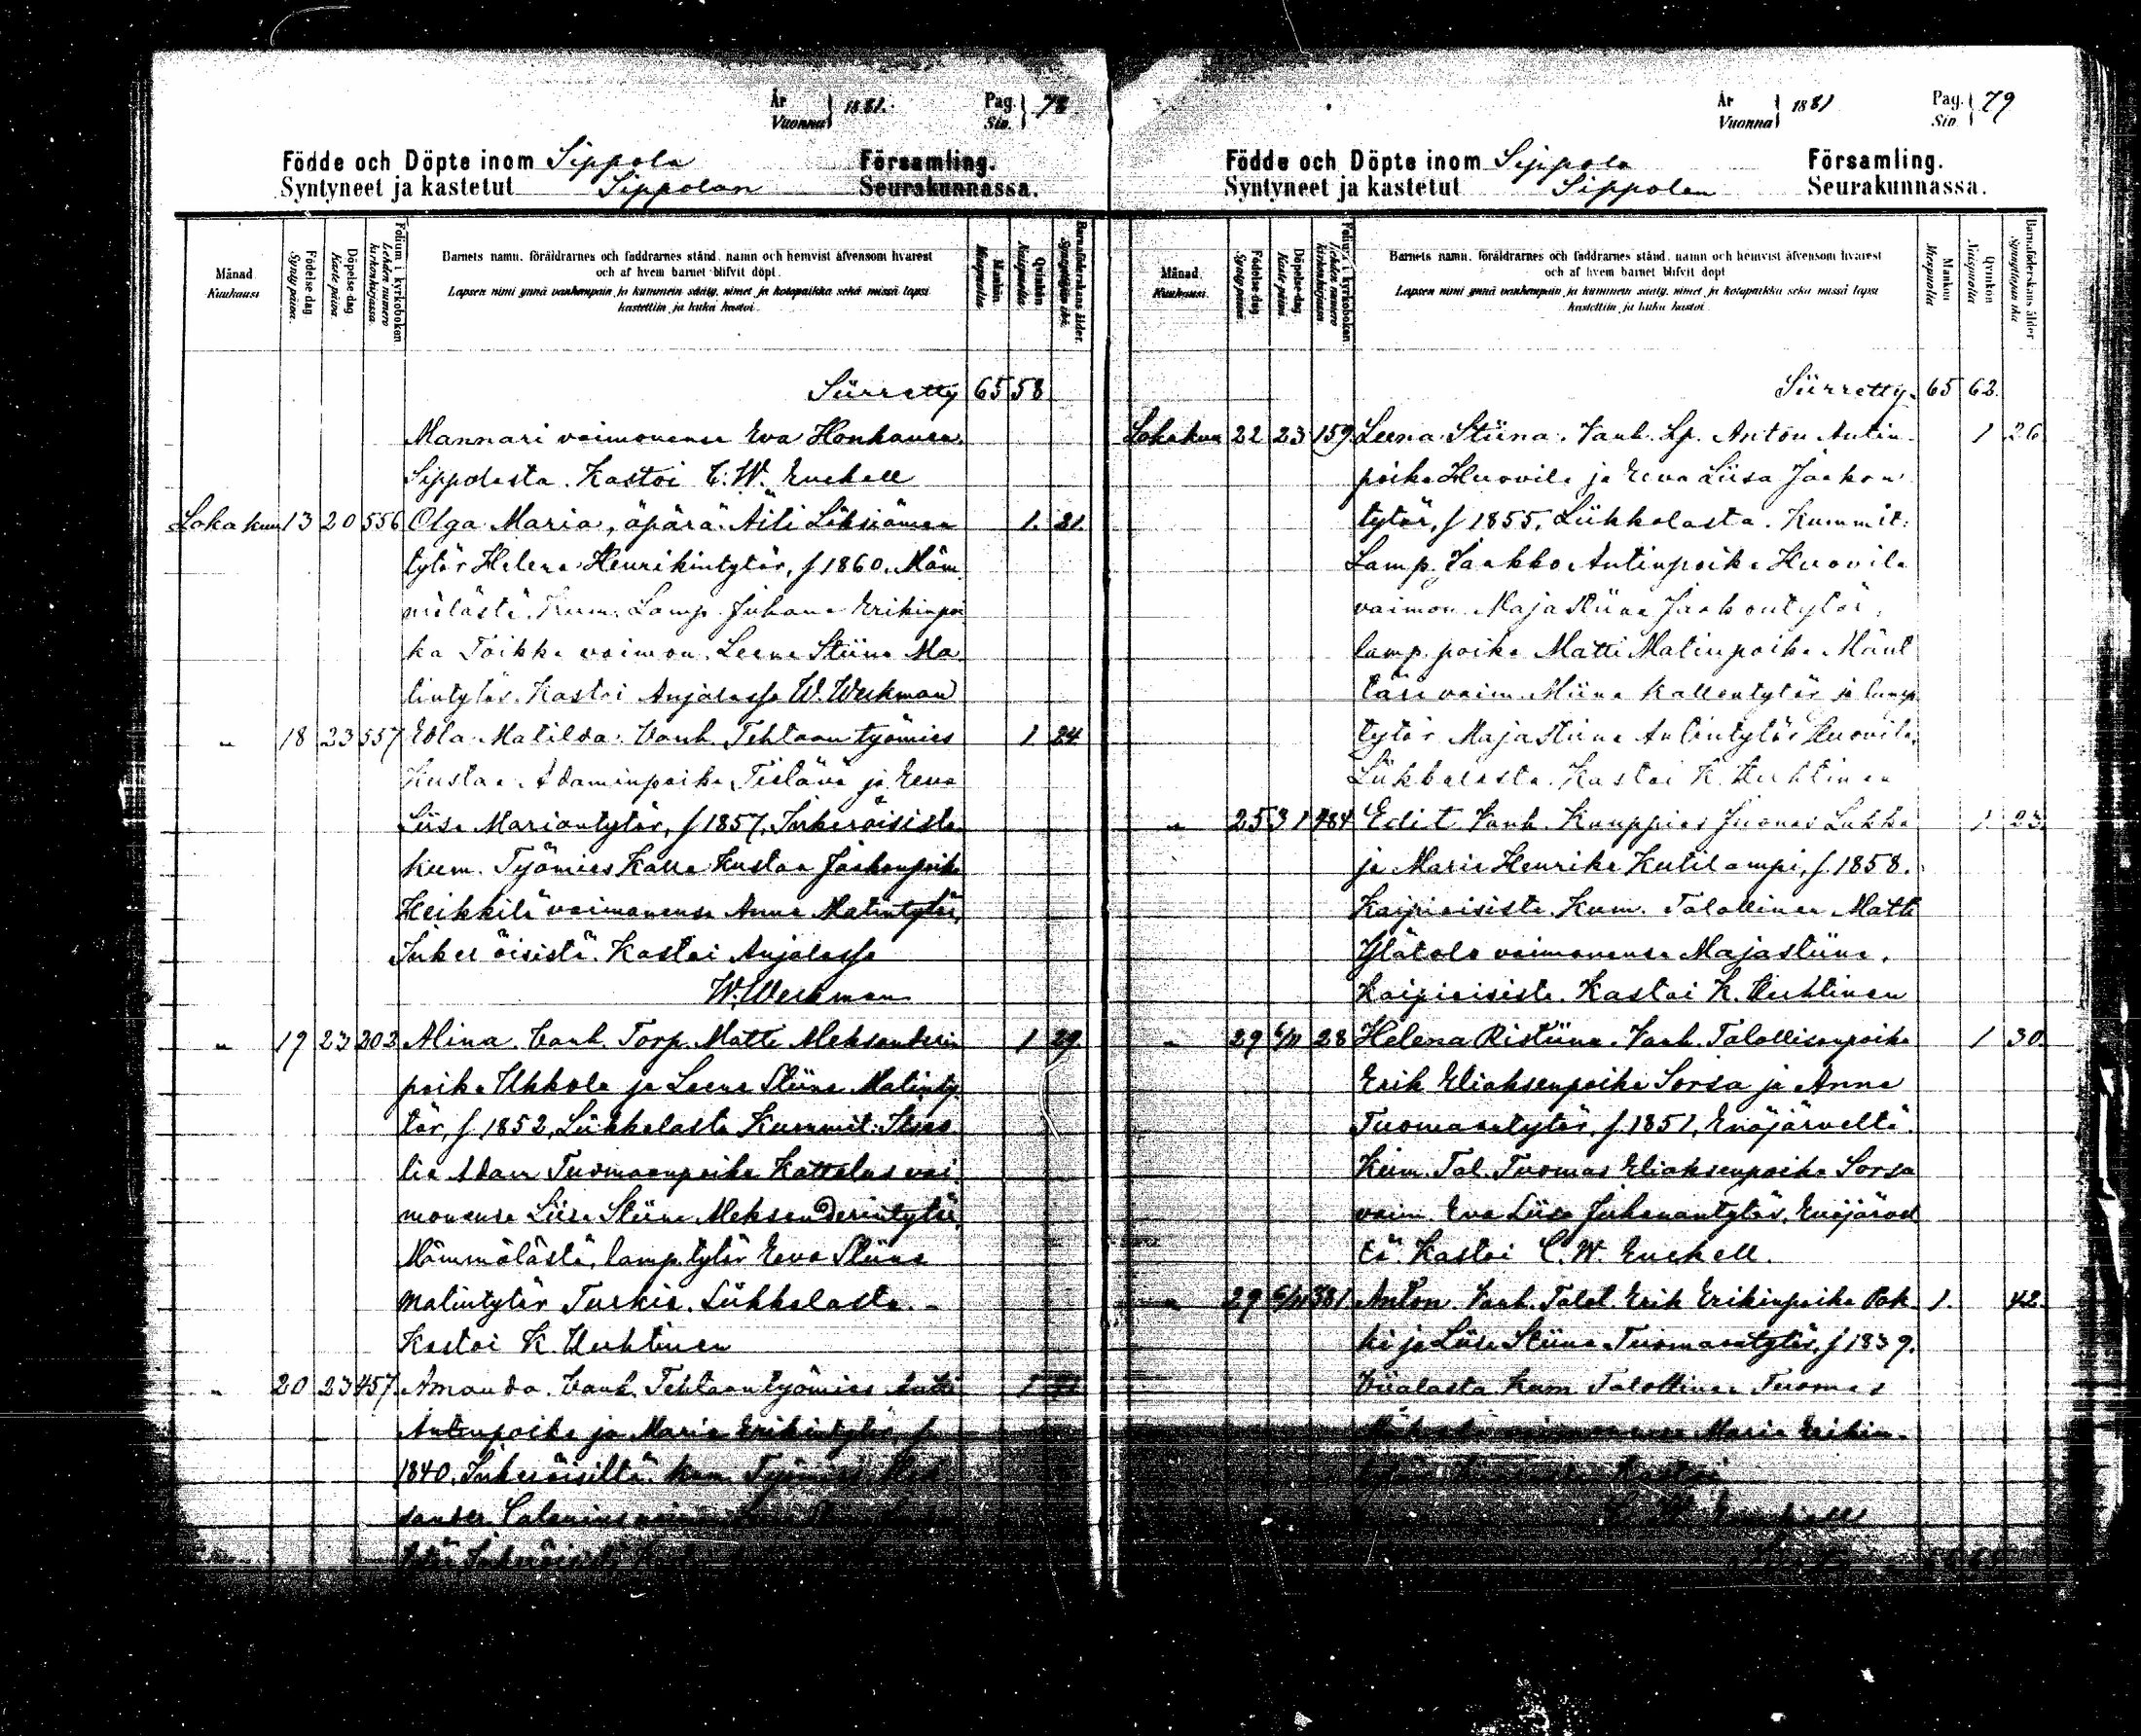 År Vuonna 1881. Pag. Siv. 78
Födde och Döpte inom Sippola Församling.
Syntyneet ja kastetut Sippolan Seurakunnassa.
Månad Kuukausi
Födelse-dag Synty-päivä.
Döpelse-dag Kaste-päivä
Folium i kyrkoboken Lehden numero kirkonkirjassa.
Barnets namn, föräldrarnes och faddrarnes stånd, namn och hemvist äfvensom hvarest
och af hvem barnet blifvit döpt.
Lapsen nimi ynnä vanhempain ja kummein sääty, nimet ja kotopaikka sekä missä lapsi
kastettiin ja kuka kastoi.
Mankön. Miespuolia.
Qvinkön Naispuolia.
Barnaföderskans ålder.
Siirretty 65 58
Mannari vaimonensa Eva Honkanen
Sippolasta. Kastoi C. W. Enckell
Lokakuu 13 20 556 Olga Maria, äpärä. Äiti Löksiämen 1. 21.
tytär Helena Henrikintytär, f 1860. Mäm
mälästä. Kum. Lamp. Juhana Erikinpoi
ka Toikka vaimon. Leena Stiina Ma
tintytär. Kastoi Anjalassa W. Weckman
" 18 23 557 Edla Matilda. Vanh. Tehtaan työmies 1 24
Kustaa Adaminpoika Tielävä ja Eeva
Liisa Mariantytär, f 1857, Inkeröisistä
kum. Työmies Kalle Kustaa Jaakonpoika
Heikkilä vaimonensa Anna Matintytär,
Inkeröisistä. Kastoi Anjalassa
W. Weckman
" 19 23 202 Alina. Vanh. Torp. Matti Aleksanderin 1 29.
poika Ukkola ja Leena Stiina Matinty
tär, f 1852, Liikkalasta Kummit: Itsel
lis Adam Tuomaanpoika Kattelus vai
monensa Liisa Stiina Aleksanderintytär,
Mämmälästä, lamp. tytär Eeva Stiina
Matintytär Turkia. Liikkalasta.
Kastoi K. Uuhtinen
" 20 23 457. Amanda. Vanh. Tehtaan työmies Antti 1
Antinpoika ja Maria Erikintytär, f
1840, Inkeröisiltä. Kum. Työmies Alek
sander Calenius
År Vuonna 1881 Pag. Siv. 79
Födde och Döpte inom Sippola Församling.
Syntyneet ja kastetut Sippolan Seurakunnassa.
Månad. Kuukausi.
Födelse-dag Synty-päivä.
Döpelse-dag. Kaste-päivä
Folium i kyrkoboken Lehden numero kirkonkirjassa.
Barnets namn, föräldrarnes och faddrarnes stånd, namn och hemvist äfvensom hvarest
och af hvem barnet blifvit döpt
Lapsen nimi ynnä vanhempain ja kummein sääty, nimet ja kotopaikka sekä missä lapsi
kastettiin ja kuka kastoi
Mankön Miespuolia
Qvinkön Naispuolia
Barnaföderskans ålder
Siirretty. 65 62.
Lokakuu 22 23 159. Leena Stiina. Vanh. Lp. Anton Antin 1 26
poika Huovila ja Eeva Liisa Jaakon
tytär, f 1855, Liikkalasta. Kummit:
Lamp. Jaakko Antinpoika Huovila
vaimon. Maja Stiina Jaakontytär,
lamp. poika Matti Matinpoika Mänt
täri vaim. Miina Kallentytär ja lamp.
tytär Maja Stiina Antintytär Huovila,
Liikkalasta. Kastoi K. Uuhtinen
" 25 31 484 Edit Vanh. Kauppias Juonas Lukka 1 23.
ja Maria Henrika Kutilampi, f. 1858.
Kaipiaisista. Kum. Talollinen Matti
Ylätalo vaimonensa Maja Stiina.
Kaipiaisista. Kastoi K. Uuhtinen
" 29 6/11 28 Helena Ristiina. Vanh. Talollisenpoika 1 30.
Erik Eliaksenpoika Sorsa ja Anna
Tuomaantytär, f. 1851, Enäjärveltä.
Kum. Tal. Tuomas Eliaksenpoika Sorsa
vaim. Eva Liisa Juhanantytär, Enäjärvel
tä. Kastoi C. W. Enckell.
" 29 6/11 381 Anton. Vanh. Talol. Erik Erikinpoika Pak 1. 42.
ki ja Liisa Stiina Tuomaantytär, f 1839.
Viialasta Kum Talollinen Tuomas
vaimonensa Maria Erikin
Kastoi
C. W. Enckell